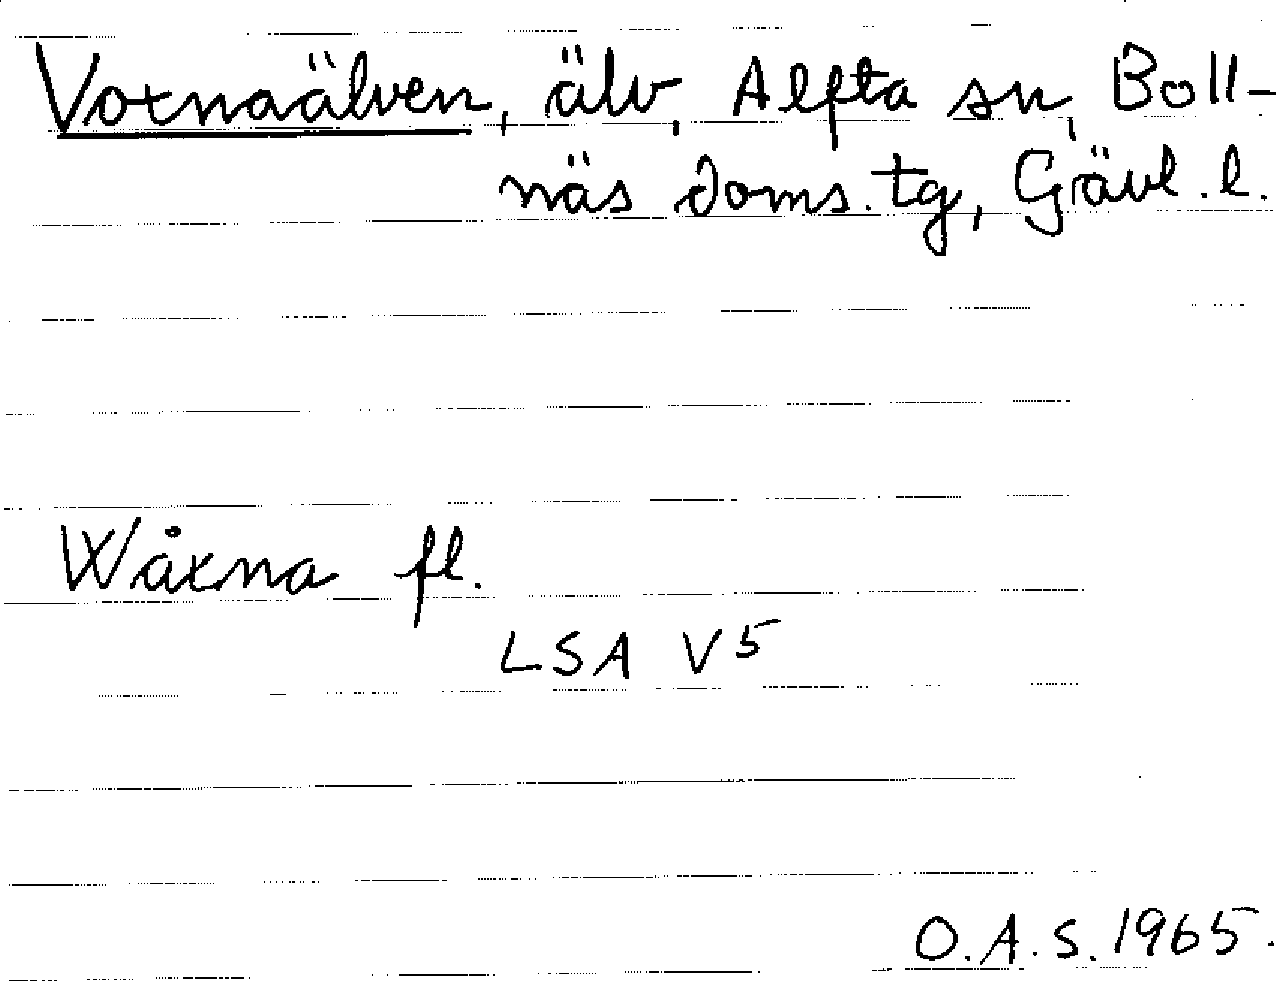 Voxnaälven, älv, Alfta sn, Boll-
näs doms.tg, Gävl.l.
Wåxna fl.
LSA V5
O.A.S. 1965.